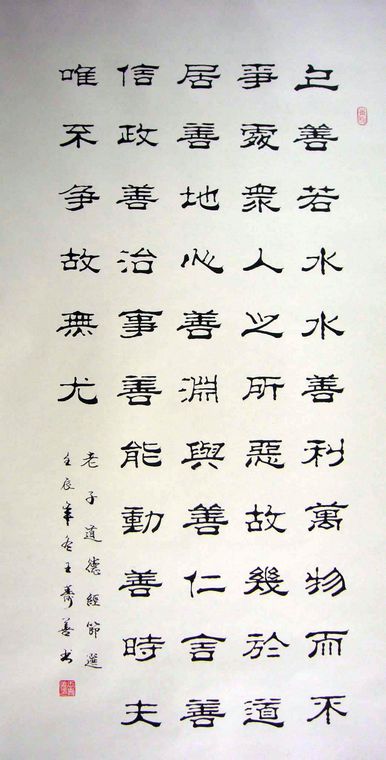 上善若水水善利萬物而不
爭處衆人之所惡故幾於道
居善地心善淵與善仁言善
信政善治事善能動善時夫
唯不争故無尤
老子道德經節選
壬辰年冬王壽善书